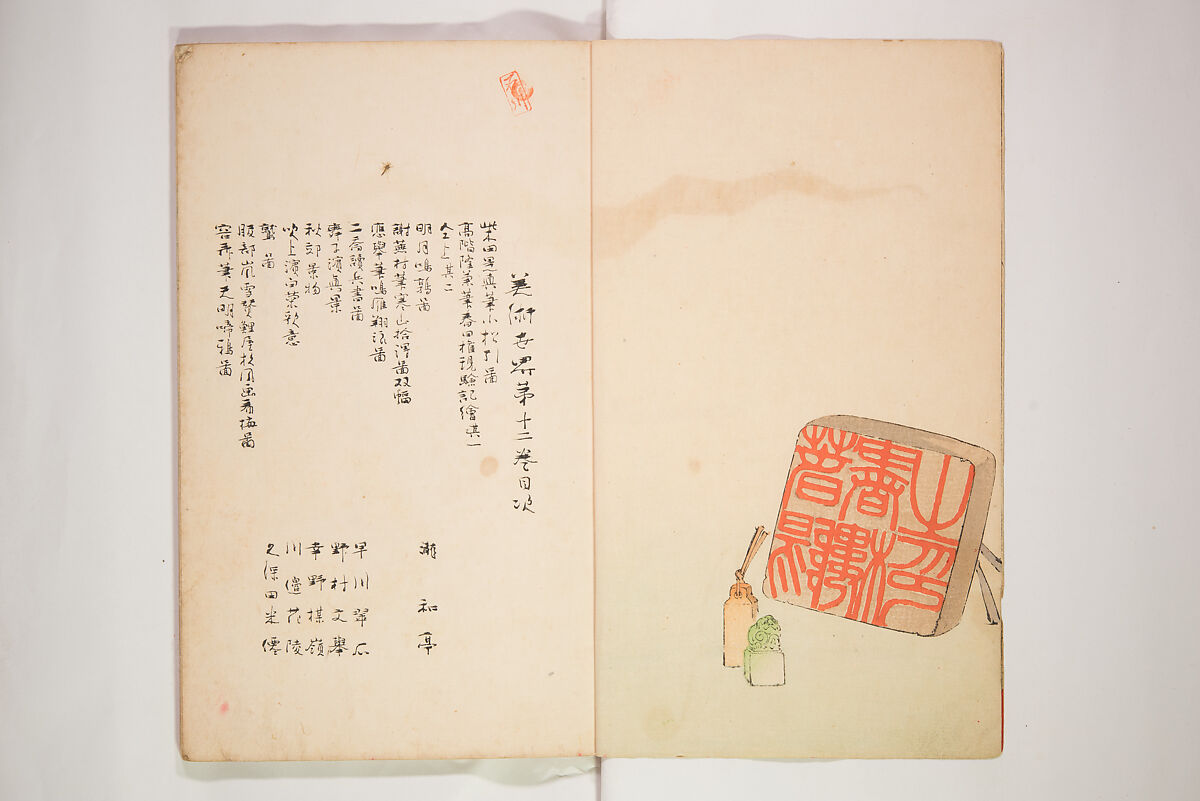 美術世界第十二巻目次
柴田是真筆小松引圖
高階隆兼筆春日権現験記繪其一
仝上其二
明月鳴鶉圖 瀧和亭
謝蕪村筆寒山拾得圖双幅
應舉筆鳴雁翔浪圖
二喬讀兵書圖 早川翠石
舞子濱真景 野村文舉
秋郊景物 幸野楳嶺
吹上濱白菊歌意 川邉花陵
鷲圖 久保田米僊
服部嵐雪賛鯉屋杉風画看梅圖
容斎筆天明啼鴉圖